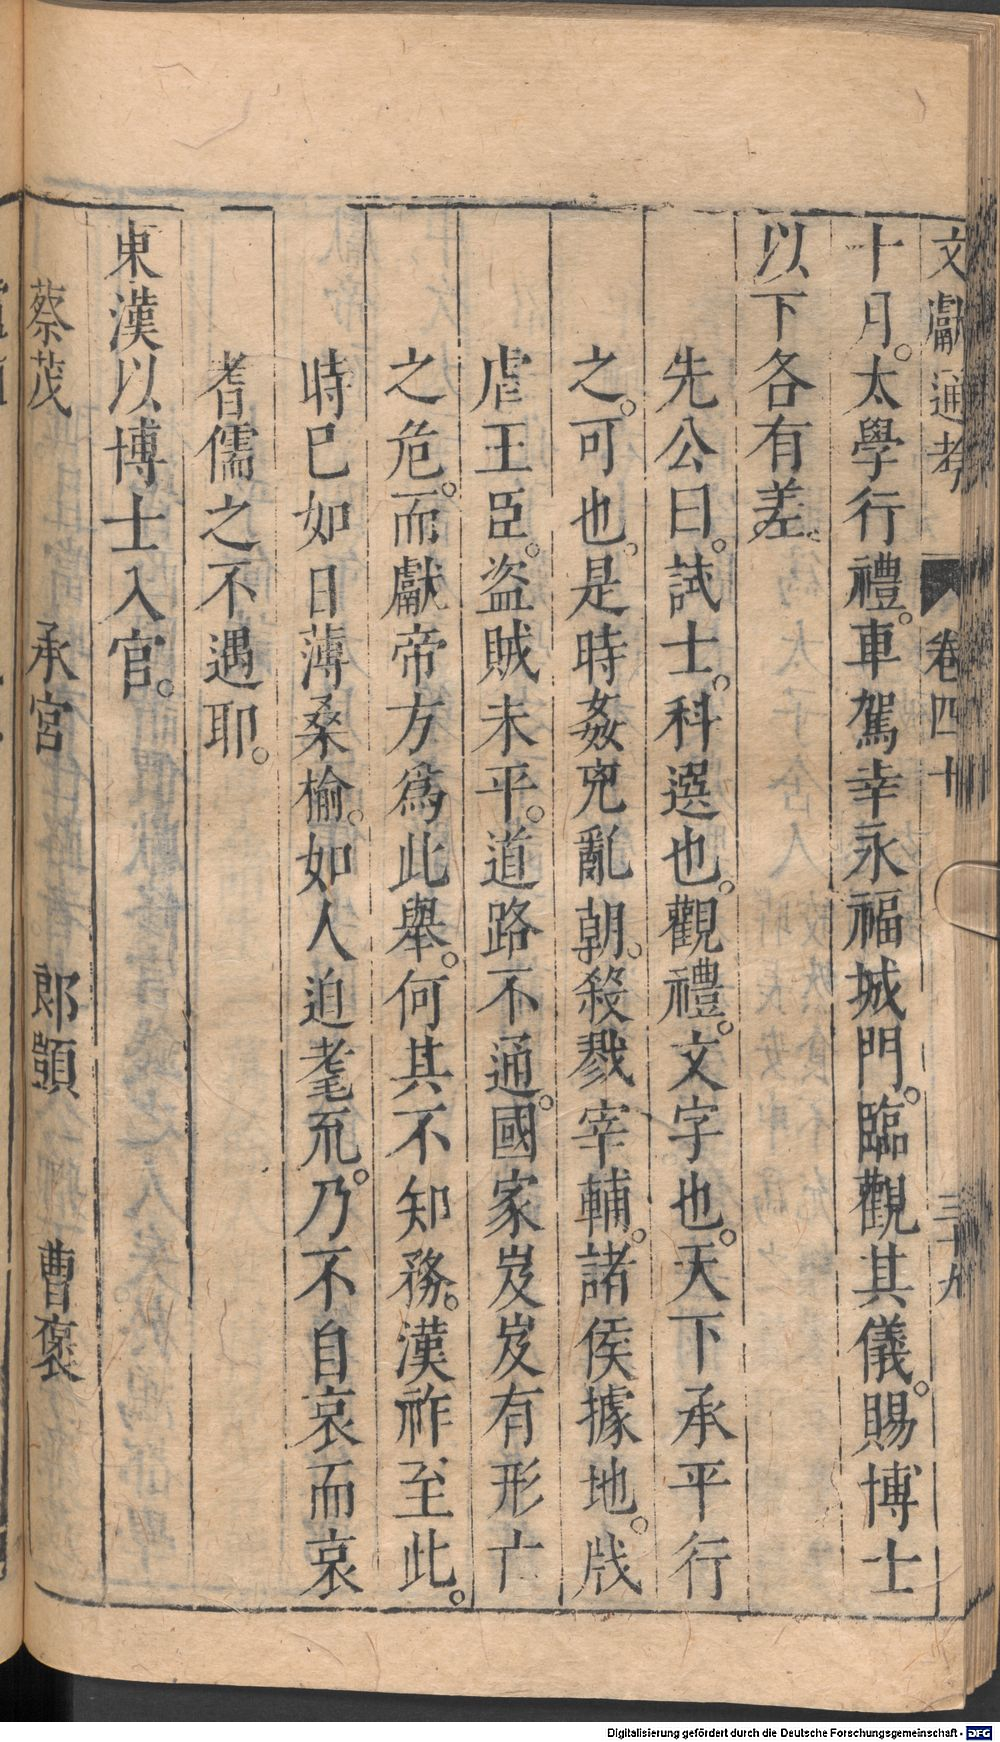 文獻通考 卷四十 三十九
十月。太學行禮。車駕幸永福城門。臨觀其儀。賜博士
以下各有差。
先公曰。試士。科選也。觀禮。文字也。天下承平行
之。可也。是時姦兇亂朝。殺戮宰輔。諸侯據地。戕
虐王臣。盜賊未平。道路不通。國家岌岌有形亡
之危。而獻帝方爲此舉。何其不知務。漢祚至此。
時已如日薄桑榆。如人迫耄𠒋。乃不自哀而哀
耆儒之不遇耶。
東漢以博士入官。
蔡茂 承宮 郎顗 曹褒
Digitalisierung gefördert durch die Deutsche Forschungsgemeinschaft - DFG